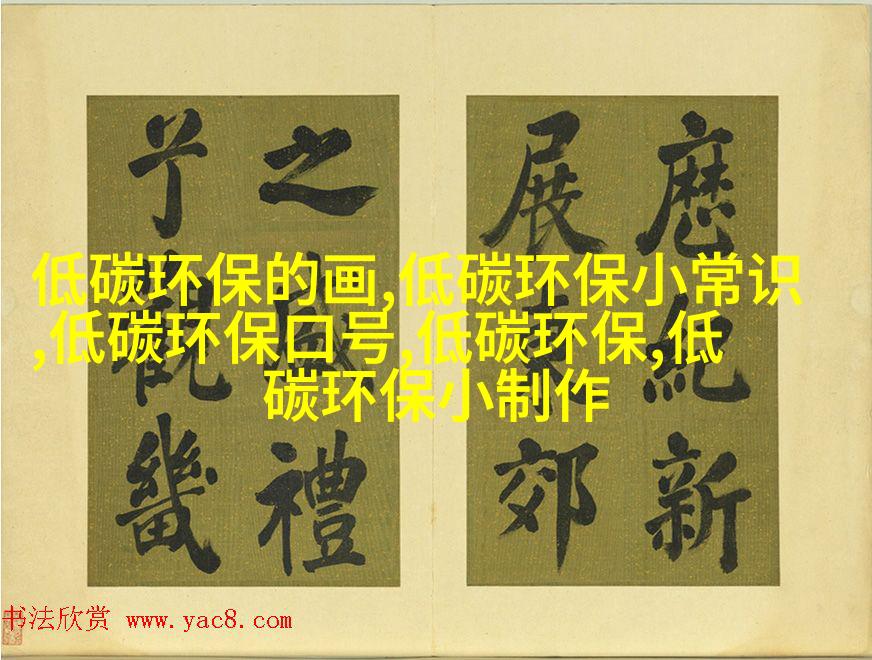 低碳环保的画,低碳环保小常识
,低碳环保口号,低碳环保,低
碳环保小制作
紀新
展郊
之禮
觀畿
书法欣赏 www.yac8.com